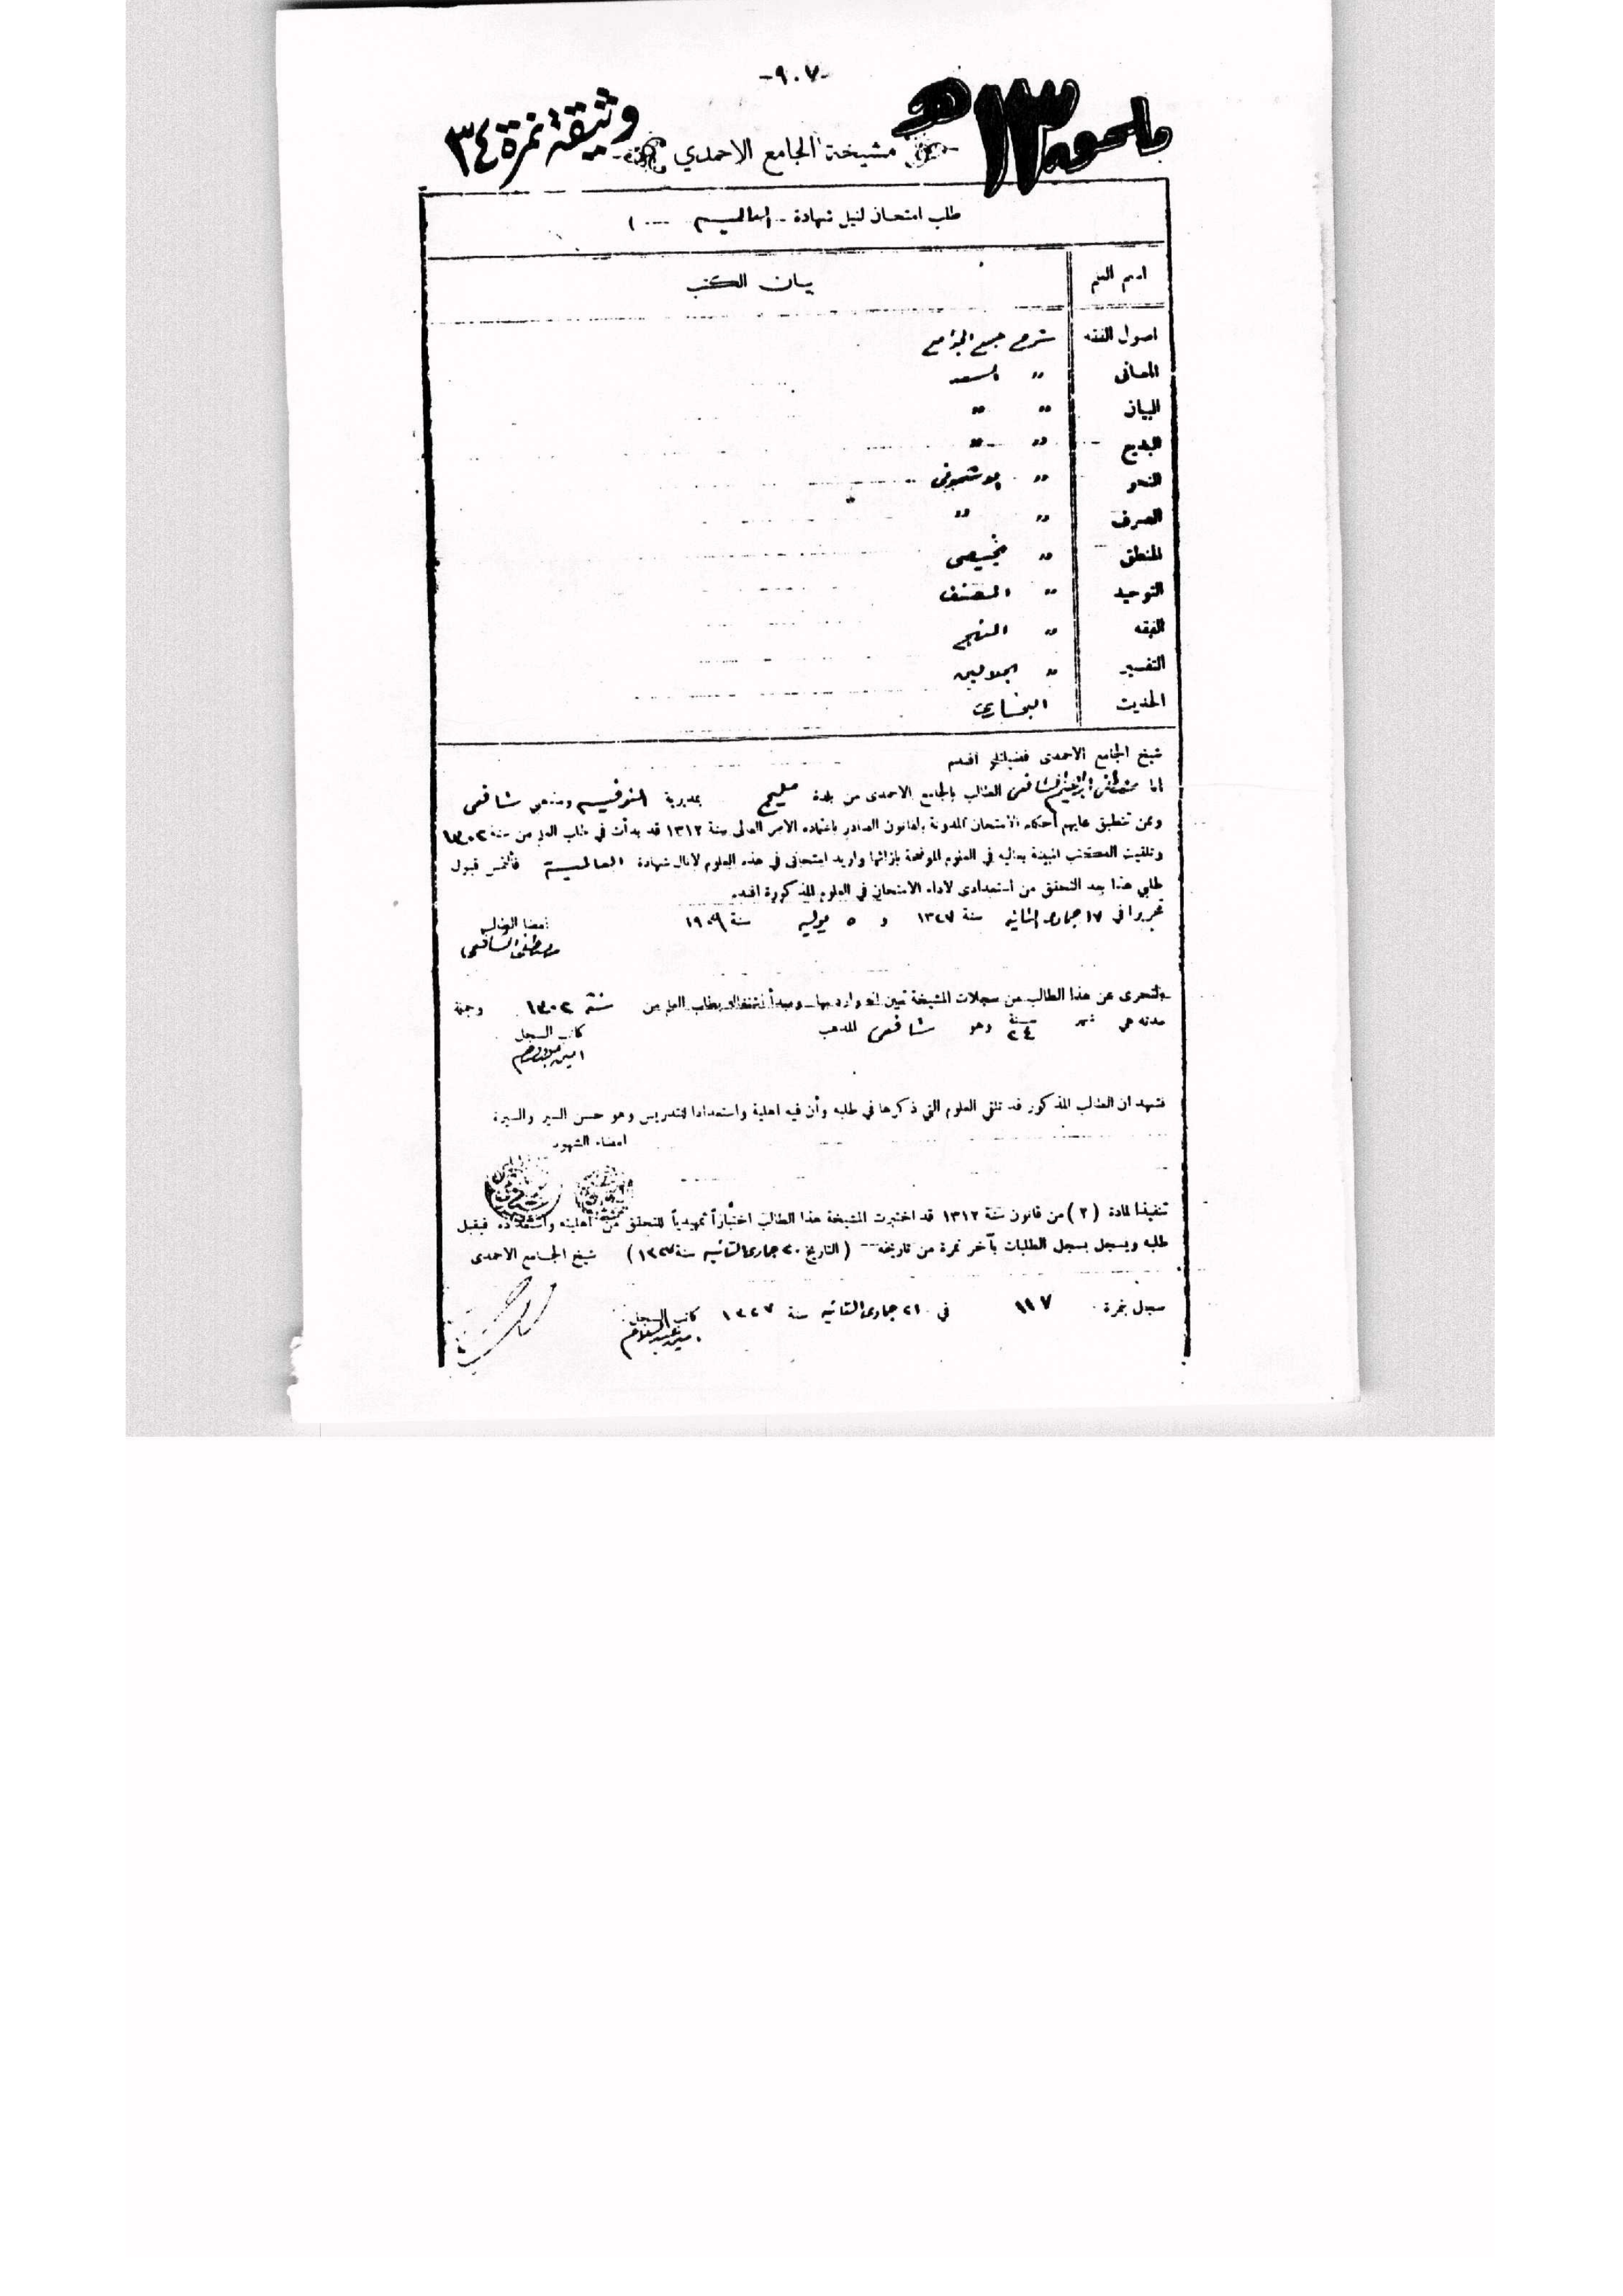 -٩٠٧-
ملحوه ١٣ هـ
وثيقة نمرة ٣٤
مشيخة الجامع الاحمدي
طلب امتحان لنيل شهادة - العالمية
اسم العلم بيان الكتب
اصول الفقه شرح جمع الجوامع
المعانى " السعد
البيان " "
البديع " "
النحو " الاشمونى
الصرف " "
المنطق " خبيصى
التوحيد " المصنف
الفقه " المنهج
التفسير " الجلالين
الحديث البخارى
شيخ الجامع الاحمدى فضيلتلو افندم
انا مصطفى ابراهيم الشافعى الطالب بالجامع الاحمدى من بلدة مليج بمديرية المنوفيه ومذهبى شافعى
وممن تنطبق عليهم أحكام الامتحان المدونة بالقانون الصادر باعتماده الأمر العالى سنة ١٣١٢ قد بدأت في طلب العلم من سنة ١٣٠٢
وتلقيت الكتب المبينة بعاليه في العلوم الموضحة بازائها واريد امتحانى في هذه العلوم لأنال شهادة العالمية فألتمس قبول
طلبي هذا بعد التحقق من استعدادى لاداء الامتحان في العلوم المذكورة افندم
تحريرا في ١٧ جمادى الثانيه سنة ١٣٢٧ و ٥ يوليه سنة ١٩٠٩
امضا الطالب
مصطفى الشافعى
بالتحرى عن هذا الطالب من سجلات المشيخة تبين انه وارد بها ومبدأ اشتغاله بطلب العلم من سنة ١٣٠٢ وجملة
مدته هي شهر سنة ٢٤ وهو شافعى المذهب
كاتب السجل
نشهد ان الطالب المذكور قد تلقى العلوم التي ذكرها في طلبه وأن فيه اهلية واستعدادا للتدريس وهو حسن السير والسيرة
امضاء الشهود
تنفيذا لمادة (٢) من قانون سنة ١٣١٢ قد اختبرت المشيخة هذا الطالب اختباراً تمهيدياً للتحقق من اهليته واستعداده فيقبل
طلبه ويسجل بسجل الطلبات بآخر نمرة من تاريخه (التاريخ ٢٠ جمادى الثانيه سنة ١٣٢٧) شيخ الجامع الاحمدى
سجل بنمرة ١١٧ في ٢١ جمادى الثانيه سنة ١٣٢٧ كاتب السجل
امين عبد السلام